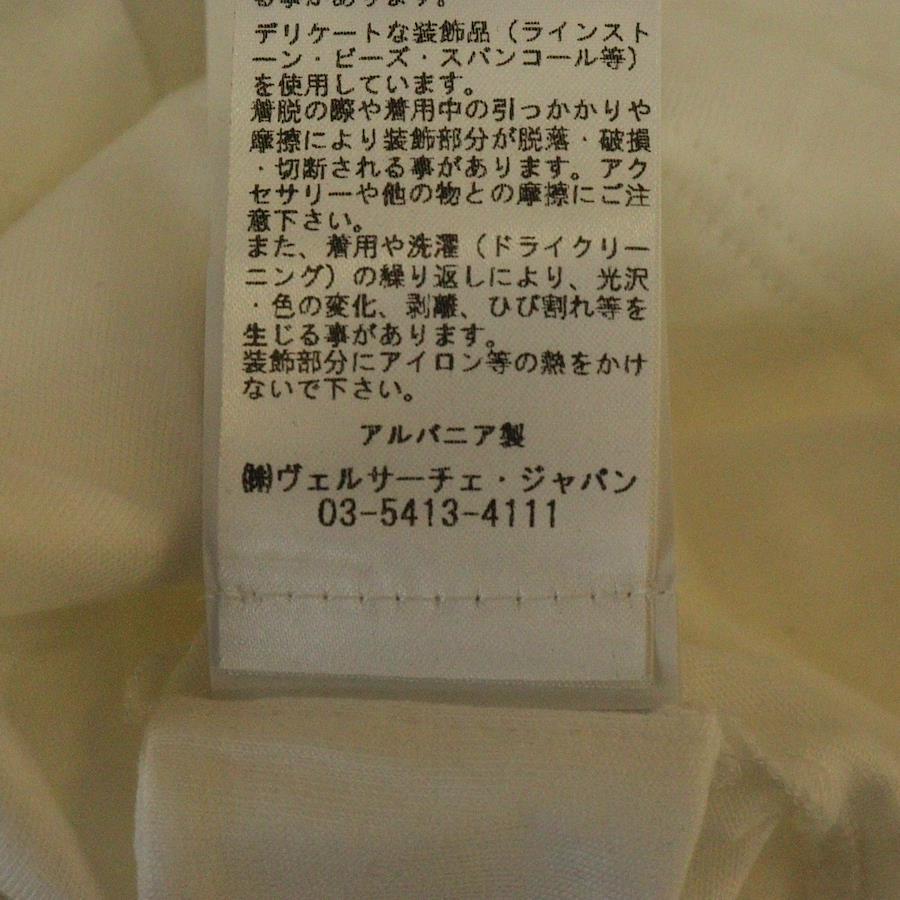 も事があります。
デリケートな装飾品（ラインスト
ーン・ビーズ・スパンコール等）
を使用しています。
着脱の際や着用中の引っかかりや
摩擦により装飾部分が脱落・破損
・切断される事があります。アク
セサリーや他の物との摩擦にご注
意下さい。
また、着用や洗濯（ドライクリー
ニング）の繰り返しにより、光沢
・色の変化、剥離、ひび割れ等を
生じる事があります。
装飾部分にアイロン等の熱をかけ
ないで下さい。
アルバニア製
㈱ヴェルサーチェ・ジャパン
03-5413-4111